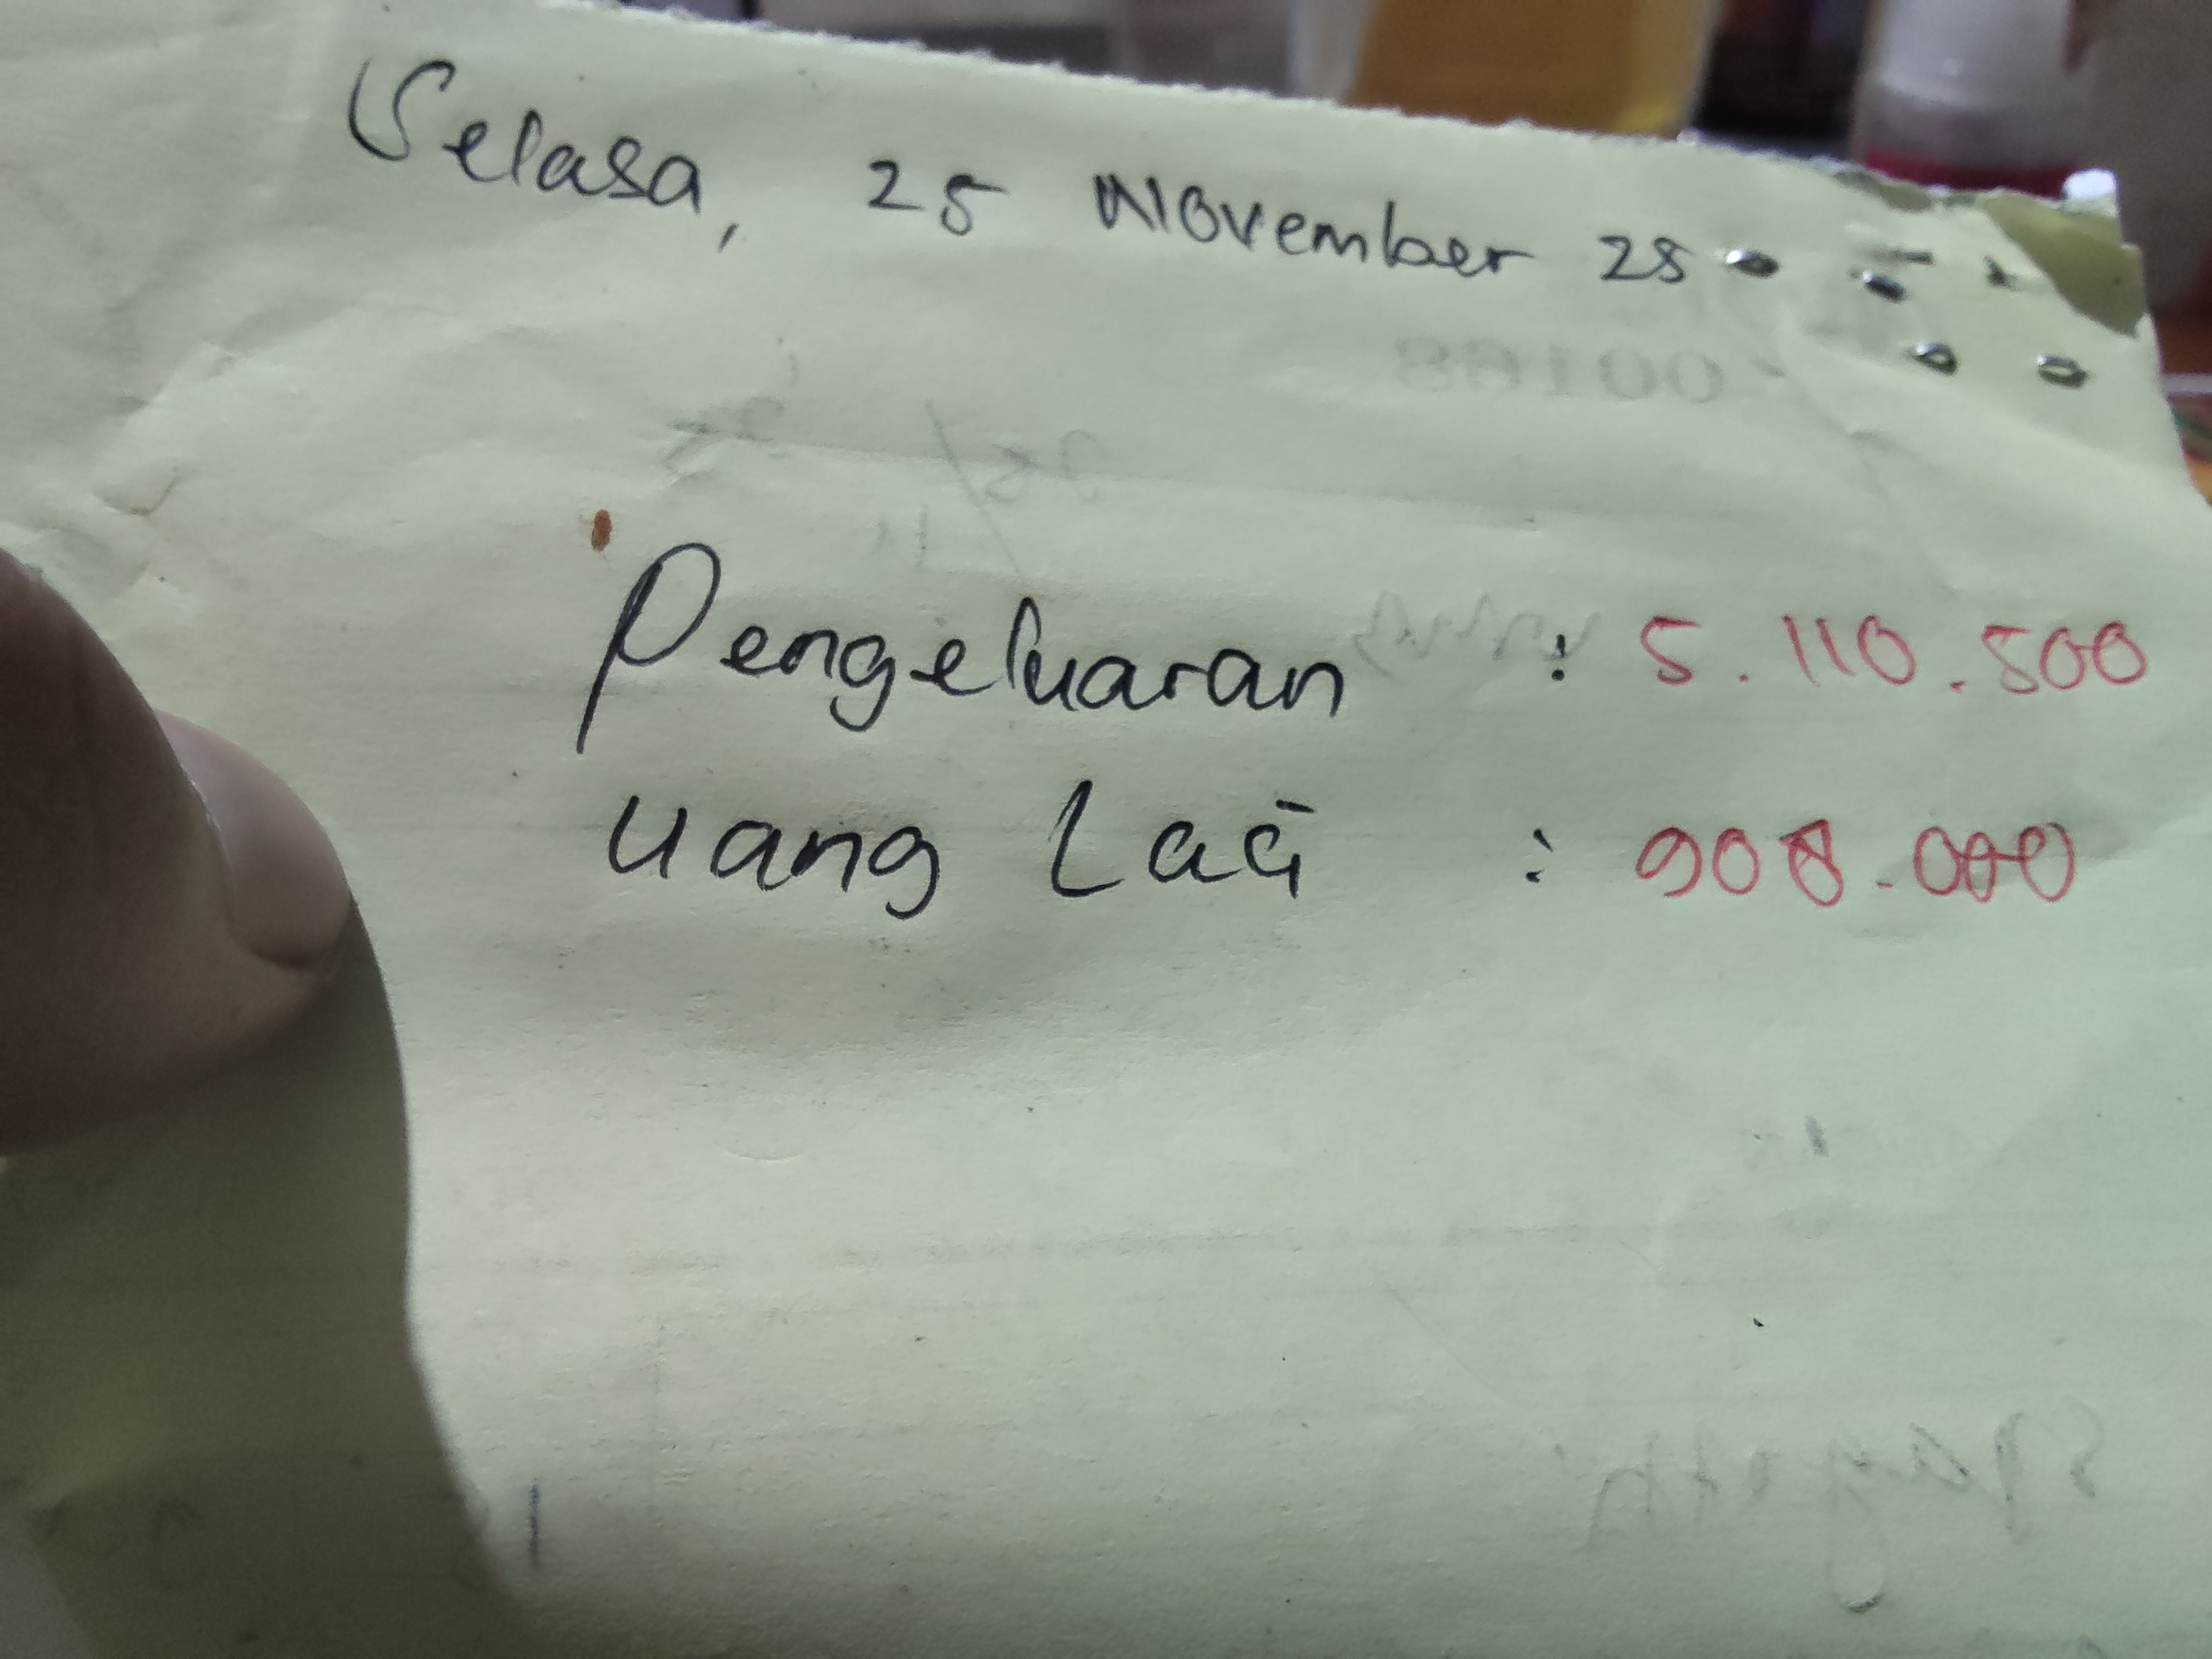 Selasa, 25 November 25
Pengeluaran : 5.110.500
uang Laci : 908.000
00188
25/11 25